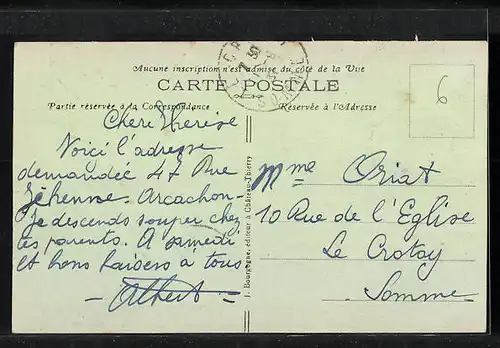 Aucune inscription n'est admise du côté de la Vue
CARTE POSTALE
Partie réservée à la Correspondance
Réservée à l'Adresse
6
Chère Thérèse
Voici l'adresse
demandée 47 Rue
Jéhenne. Arcachon-
Je descends souper chez
tes parents. A samedi
et bons baisers à tous
- Albert -
J. Bourgogne éditeur à Château-Thierry
Mme Oriat
10 Rue de l'Eglise
Le Crotoy
Somme